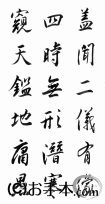 蓋聞二儀有
四時無形潛寒
窺天鑑地庸愚
(C)お手本.com